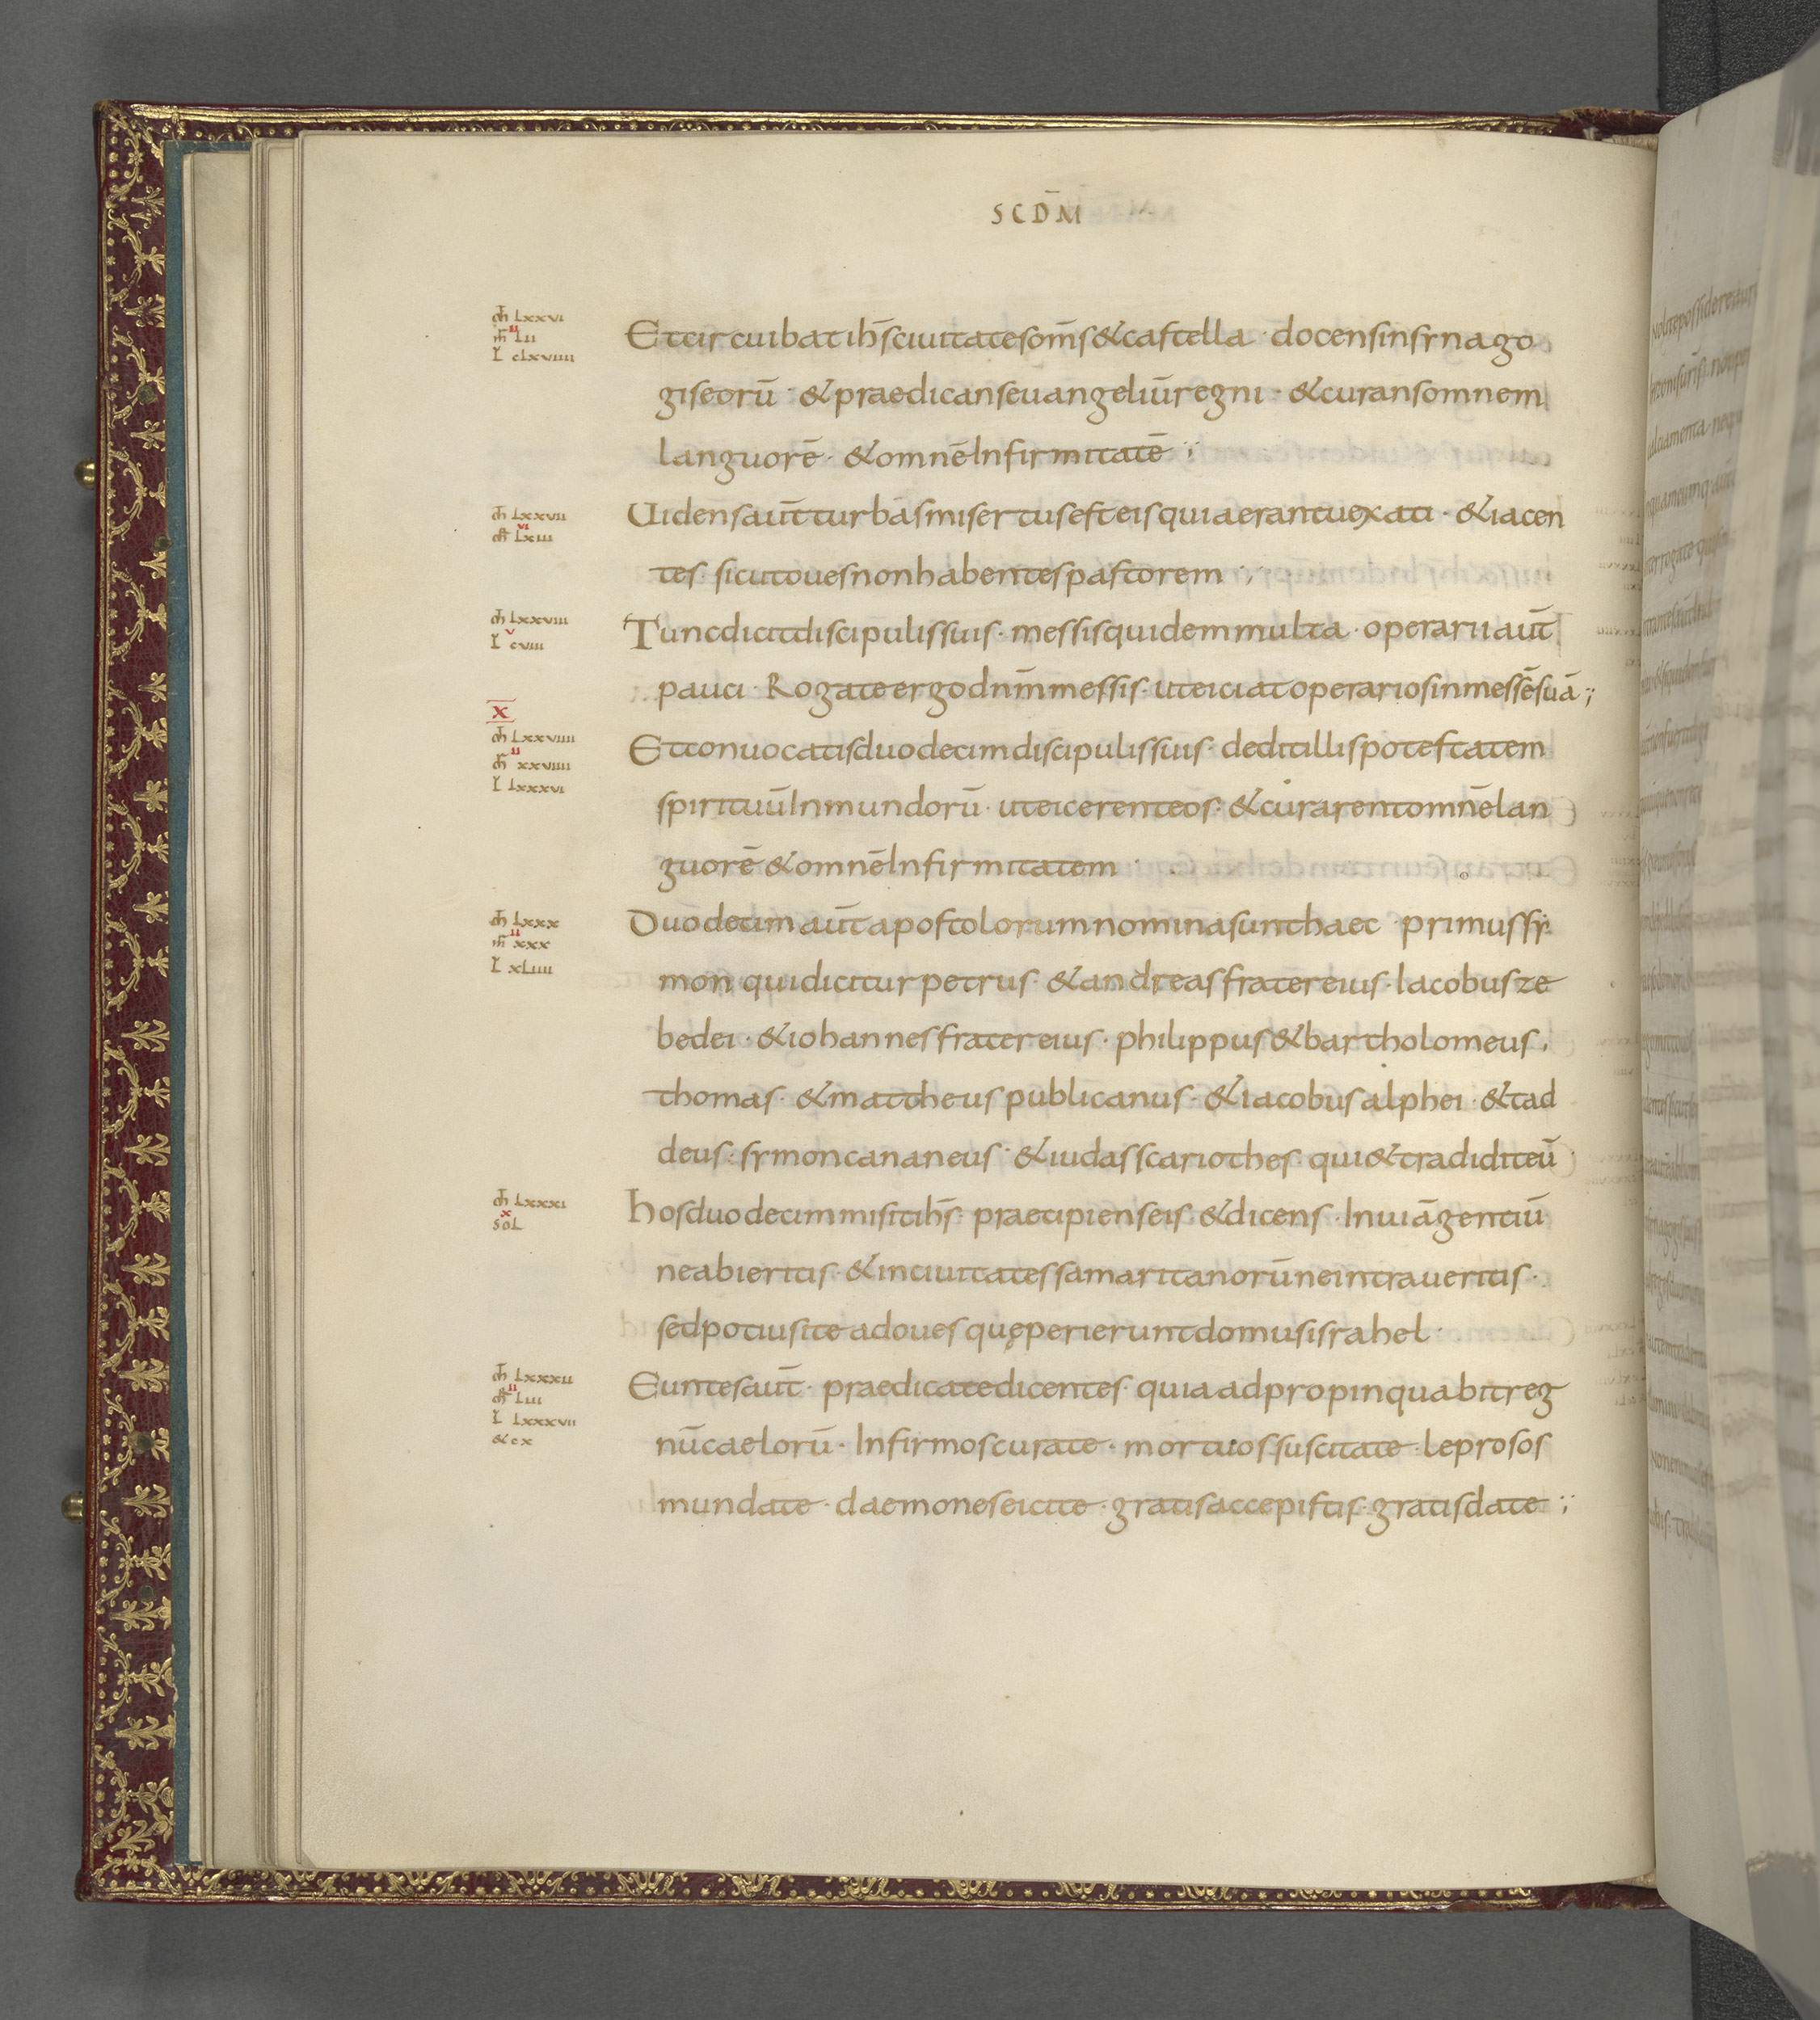 SCDM̄
m̄t LXXVI
m̄r II LII
L̄ CLXVIIII
Et circuibat ih̄s ciuitates om̄s & castella · docens in synago
gis eorū · & praedicans euangeliū regni · & curans omnem
languorē · & omnē Infirmitatē ;
m̄t LXXVII
m̄r VI LXIII
Uidens aūt turbas misertus est eis quia erant uexati · & iacen
tes · sicut oues non habentes pastorem ;
m̄t LXXVIII
V
L̄ CVIII
Tunc dicit discipulis suis · messis quidem multa · operarii aūt
pauci · Rogate ergo dn̄m messis · ut eiciat operarios in messē suā ;
X
m̄t LXXVIIII
m̄r II XXVIIII
L̄ LXXXVI
Et conuocatis duodecim discipulis suis · dedit Illis potestatem
spirituū Inmundorū · ut eicerent eos · & curarent omnē lan
guorē & omnē Infirmitatem ·
m̄t LXXX
m̄r II XXX
L̄ XLIIII
Duodecim aūt apostolorum nomina sunt haec · primus sy
mon qui dicitur petrus · & andreas frater eius · Iacobus ze
bedei · & iohannes frater eius · philippus & bartholomeus ·
thomas · & mattheus publicanus · & Iacobus alphei · & tad
deus · symon cananeus · & iudas scariothes · qui & tradidit eū ·
m̄t LXXXI
X
SOL
hos duodecim misit ih̄s · praecipiens eis · & dicens · In uiā gentiū
ne abieritis · & in ciuitates samaritanorū ne intraueritis ·
sed potius ite ad oues quę perierunt domus israhel ·
m̄t LXXXII
m̄r II LIII
L̄ LXXXVII
& CX
Euntes aūt · praedicate dicentes · quia adpropinquabit reg
nū caelorū · Infirmos curate · mortuos suscitate · leprosos
mundate · daemones eicite · gratis accepistis · gratis date ;